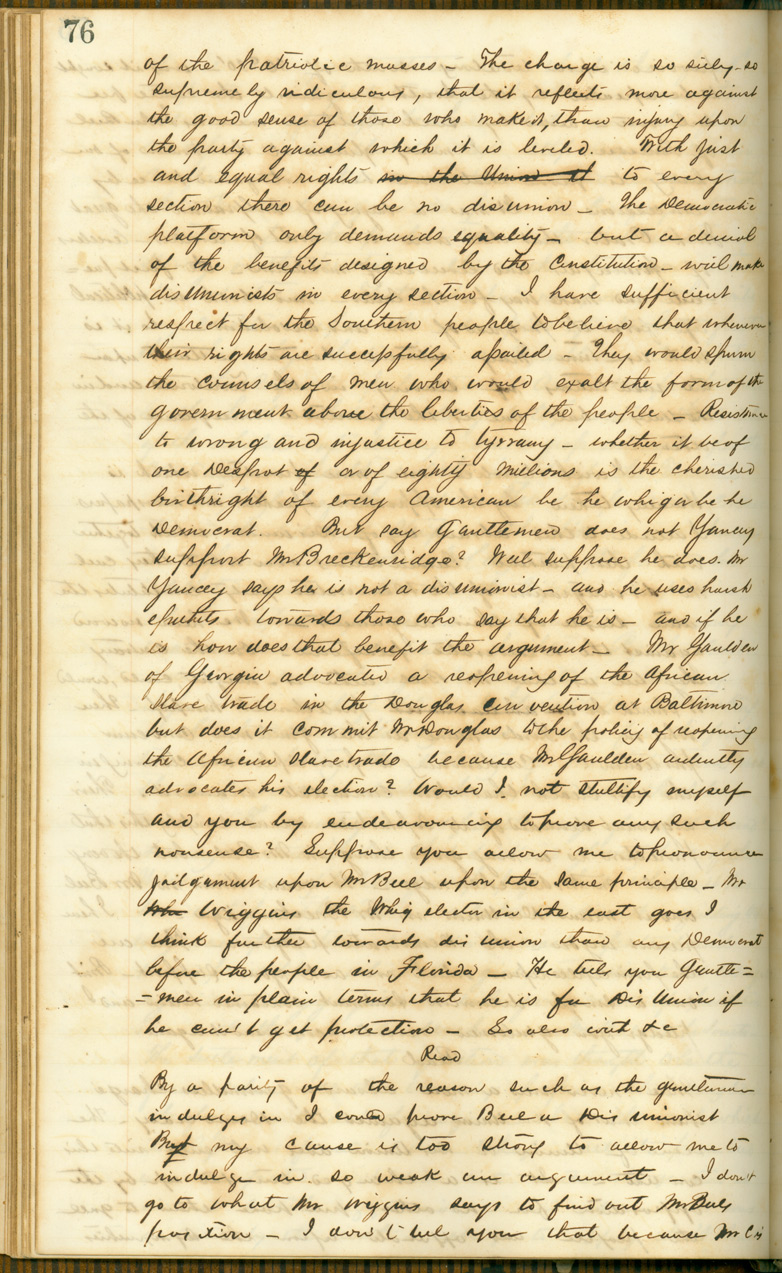 76
of the patriotic masses - The charge is so silly - so
supremely ridiculous, that it reflects more against
the good sense of those who make it, than injury upon
the party against which it is leveled. With just
and equal rights in the Union it to every
section there can be no disunion - The Democratic
platform only demands equality - but a denial
of the benefits designed by the Constitution - will make
disUnionists in every section - I have sufficient
respect for the Southern people to believe that whenever
their rights are successfully assailed - They would spurn
the counsels of men who would exalt the form of the
government above the liberties of the people - Resistance
to wrong and injustice to tyranny - whether it be of
one Despot of or of eighty millions is the cherished
birthright of every American be he whig or be he
Democrat. But say Gentlemen does not Yancey
support Mr Breckenridge? Well suppose he does. Mr
Yancey says he is not a disunionist - and he uses harsh
epithets towards those who say that he is - and if he
is how does that benefit the argument - Mr Gaulden
of Georgia advocated a reopening of the African
Slave trade in the Douglas convention at Baltimore
but does it commit Mr Douglas to the policy of reopening
the African slave trade because Mr Gaulden ardently
advocates his election? Would I not stultify myself
and you by endeavouring to prove any such
nonsense? Suppose you allow me to pronounce
judgement upon Mr Bell upon the same principle - Mr
Wiggins the Whig elector in the east goes I
think further towards disunion than any Democrat
before the people in Florida - He tells you Gentle=
=men in plain terms that he is for DisUnion if
he can't get protection - So also with &c
Read
By a parity of the reason such as the gentleman
indulges in I could prove Bell a Disunionist
But my cause is too strong to allow me to
indulge in so weak an argument - I don't
go to what Mr Wiggins says to find out Mr Bells
position - I don't tell you that because Mr C is